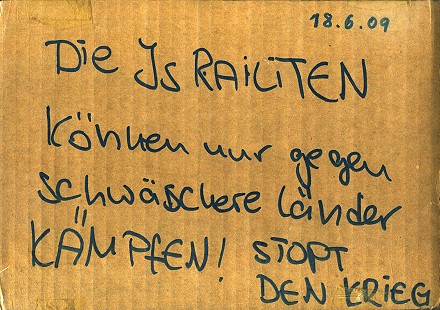 18.6.09
Die IsRAiliTEN
Können nur gegen
schwäschere länder
KÄMPfEN! STOPT
DEN KRIEG